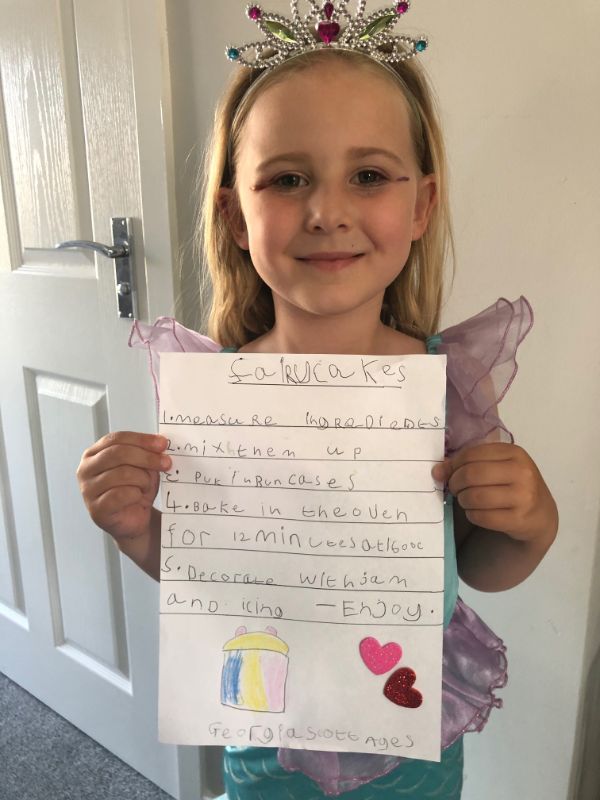 faiRycakes
1.measuRe ingReDients
2.mix them up
3 put in Bun cases
4.Bake in the oven
for 12 minutes at 160oc
5. Decorate with jam
anD icing — Enjoy.
Georgia scott Age5